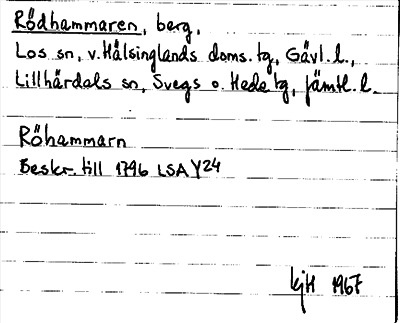 Rödhammaren, berg,
Los sn, v. Hälsinglands doms. tg, Gävl. l.,
Lillhärdals sn, Svegs o. Hede tg, Jämtl. l.
Röhammarn
Beskr. till 1796 LSA Y24
kjH 1967